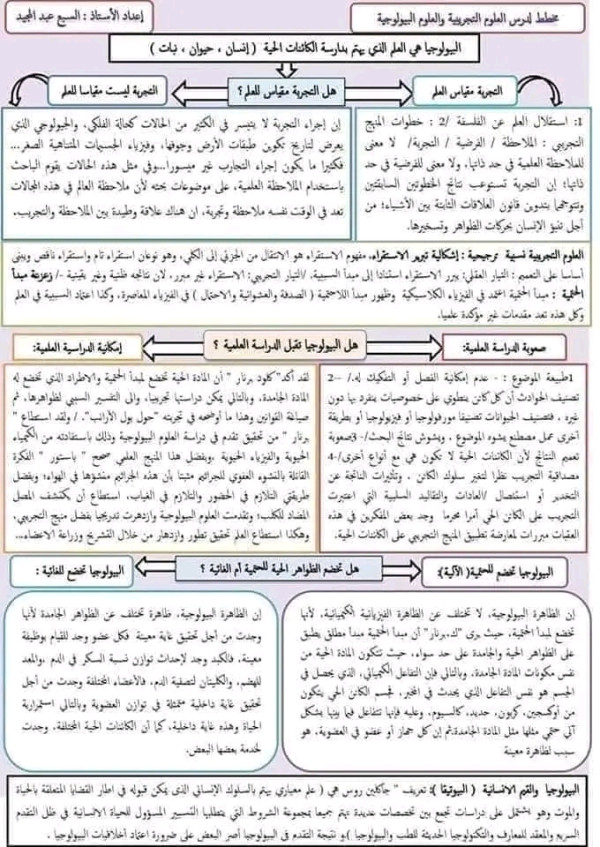 مخطط لدرس العلوم التجريبية والعلوم البيولوجية
إعداد الأستاذ : السبع عبد المجيد
البيولوجيا هي العلم الذي يهتم بدارسة الكائنات الحية ( إنسان ، حيوان ، نبات )
التجربة مقياس العلم
هل التجربة مقياس للعلم؟
التجربة ليست مقياسا للعلم
1: استقلال العلم عن الفلسفة /2 : خطوات المنهج
التجريبي : الملاحظة / الفرضية / التجربة/ لا معنى
للملاحظة العلمية في حد ذاتها، ولا معنى للفرضية في حد
ذاتها؛ إن التجربة تستوعب نتائج الخطوتين السابقتين
وتتوجهما بتدوين قانون العلاقات الثابتة بين الأشياء؛ من
أجل تنبؤ الإنسان بحركات الظواهر وتسخيرها.
إن إجراء التجربة لا يتيسر في الكثير من الحالات كحالة الفلكي، والجيولوجي الذي
يعرض لتاريخ تكوين طبقات الأرض وجوفها، وفيزياء الجسيمات المتناهية الصغر...
فكثيرا ما يكون إجراء التجارب غير ميسورا...وفي مثل هذه الحالات يقوم الباحث
باستخدام الملاحظة العلمية، على موضوعات بحثه لأن ملاحظة العالم في هذه المجالات
تعد في الوقت نفسه ملاحظة وتجربة، ان هناك علاقة وطيدة بين الملاحظة والتجريب.
العلوم التجريبية نسبية ترجيحية : إشكالية تبرير الاستقراء، مفهوم الاستقراء هو الانتقال من الجزئي إلى الكلي، وهو نوعان استقراء تام واستقراء ناقص ويبنى
أساسا على التعميم : التيار العقلي: يبرر الاستقراء استنادا إلى مبدأ السببية, /التيار التجريبي: الاستقراء غير مبرر, لان نتائجه ظنية وغير يقينية -/ زعزعة مبدأ
الحتمية : مبدأ الحتمية اعتمد في الفيزياء الكلاسيكية وظهور مبدأ اللاحتمية ( الصدفة والعشوائية والاحتمال ) في الفيزياء المعاصرة، وكذا اعتماد السببية في العلم
وكل هذه تعد مقدمات غير مؤكدة علميا.
صعوبة الدراسة العلمية:
هل البيولوجيا تقبل الدراسة العلمية ؟
إمكانية الدراسية العلمية:
1طبيعة الموضوع : - عدم إمكانية الفصل أو التفكيك له./ –2
تصنيف الحوادث أن كل كائن ينطوي على خصوصيات ينفرد بها دون
غيره ، فتصنيف الحيوانات تصنيفا مورفولوجيا أو فيزيولوجيا أو بطريقة
أخرى عمل مصطنع يشوه الموضوع ، ويشوش نتائج البحث/-3صعوبة
تعميم النتائج لأن الكائنات الحية لا تكون هي مع أنواع أخرى/-4
مصداقية التجريب نظرا لتغير سلوك الكائن . وتأثيرات الناتجة عن
التخدير أو استئصال /العادات والتقاليد السلبية التي اعتبرت
التجريب على الكائن الحي أمرا محرما وجد بعض المفكرين في هذه
العقبات مبررات لمعارضة تطبيق المنهج التجريبي على الكائنات الحية.
لقد أكد"كلود برنار " أن المادة الحية تخضع لمبدأ الحتمية والاطراد الذي تخضع له
المادة الجامدة، وبالتالي يمكن دراستها تجريبيا، والى التفسير السببي لظواهرها، ثم
صياغة القوانين وهذا ما أوضحه في تجربته "حول بول الأرانب"، / ولقد استطاع "
برنار " من تحقيق تقدم في دراسة العلوم البيولوجية وذلك باستفادته من الكيمياء
الحيوية والفيزياء الحيوية ,وبفضل هذا المنهج العلمي صحح "باستور " الفكرة
القائلة بالنشوء العفوي للجراثيم مثبتا بأن هذه الجراثيم منشؤها في الهواء؛ وبفضل
طريقتي التلازم في الحضور والتلازم في الغياب، استطاع أن يكتشف المصل
المضاد للكلب؛ وتقدمت العلوم البيولوجية وازدهرت تدريجيا بفضل منهج التجريبي,
وهكذا استطاع العلم تحقيق تطور وازدهار من خلال التشريح وزراعة الاعضاء...
البيولوجيا تخضع للحتمية (الآلية):
هل تخضع الظواهر الحية للحتمية أم الغائية ؟
البيولوجيا تخضع للغائية :
إن الظاهرة البيولوجية، لا تختلف عن الظاهرة الفيزيائية الكيميائية، لأنها
تخضع لمبدأ الحتمية، حيث يرى "ك.برنار" أن مبدأ الحتمية مبدأ مطلق ينطبق
على الظواهر الحية والجامدة على حد سواء، حيث تتكون المادة الحية من
نفس مكونات المادة الجامدة، وبالتالي فإن التفاعل الكيميائي، الذي يحصل في
الجسم هو نفس التفاعل الذي يحدث في المخبر، فجسم الكائن الحي يتكون
من أوكسجين، كربون، حديد، كالسيوم، وعليه فإنها تتفاعل فيما بينها بشكل
آلي حتمي مثلها مثل المادة الجامدة,ثم إن كل جهاز أو عضو في العضوية، هو
سبب لظاهرة معينة
إن الظاهرة البيولوجية، ظاهرة تختلف عن الظواهر الجامدة لأنها
وجدت من أجل تحقيق غاية معينة فكل عضو وجد للقيام بوظيفة
معينة، فالكبد وجد لإحداث توازن نسبة السكر في الدم ،والمعد
للهضم، والكليتان لتصفية الدم، فالأعضاء المختلفة وجدت من أجل
تحقيق غاية داخلية متمثلة في توازن العضوية وبالتالي استمرارية
الحياة وهذه غاية داخلية، كما أن الكائنات الحية المختلفة، وجدت
لخدمة بعضها البعض.
البيولوجيا والقيم الانسانية ( البيوتيقا ): تعريف " جاكلين روس هي ( علم معياري يهتم بالسلوك الإنساني الذي يمكن قبوله في اطار القضايا المتعلقة بالحياة
والموت وهو يشتمل على دراسات تجمع بين تخصصات عديدة تهتم جميعا بمجموعة الشروط التي يتطلبها التسيير المسؤول للحياة الانسانية في ظل التقدم
السريع والمعقد للمعارف والتكنولوجيا الحديثة للطب والبيولوجيا )،و نتيجة التقدم في البيولوجيا أصر البعض على ضرورة اعتماد أخلاقيات البيولوجيا .